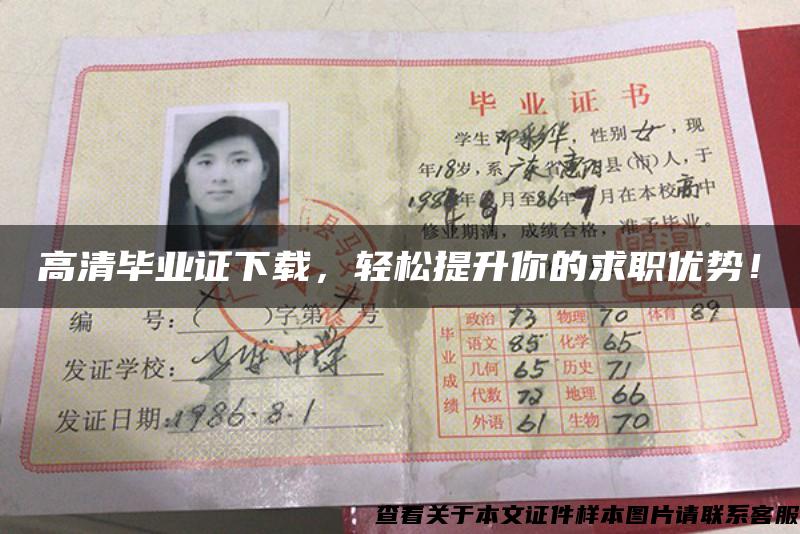 毕业证书
学生邓彩华，性别女，现
年18岁，系广东省惠阳县(市)人，于
月至86年7月在本校高中
修业期满，成绩合格，准予毕业。
高清毕业证下载，轻松提升你的求职优势！
编 号：( )字第 号
发证学校：马安中学
发证日期：1986.8.1
毕业成绩
政治 73 物理 70 体育 89
语文 85 化学 65
几何 65 历史 71
代数 72 地理 66
外语 61 生物 70
查看关于本文证件样本图片请联系客服